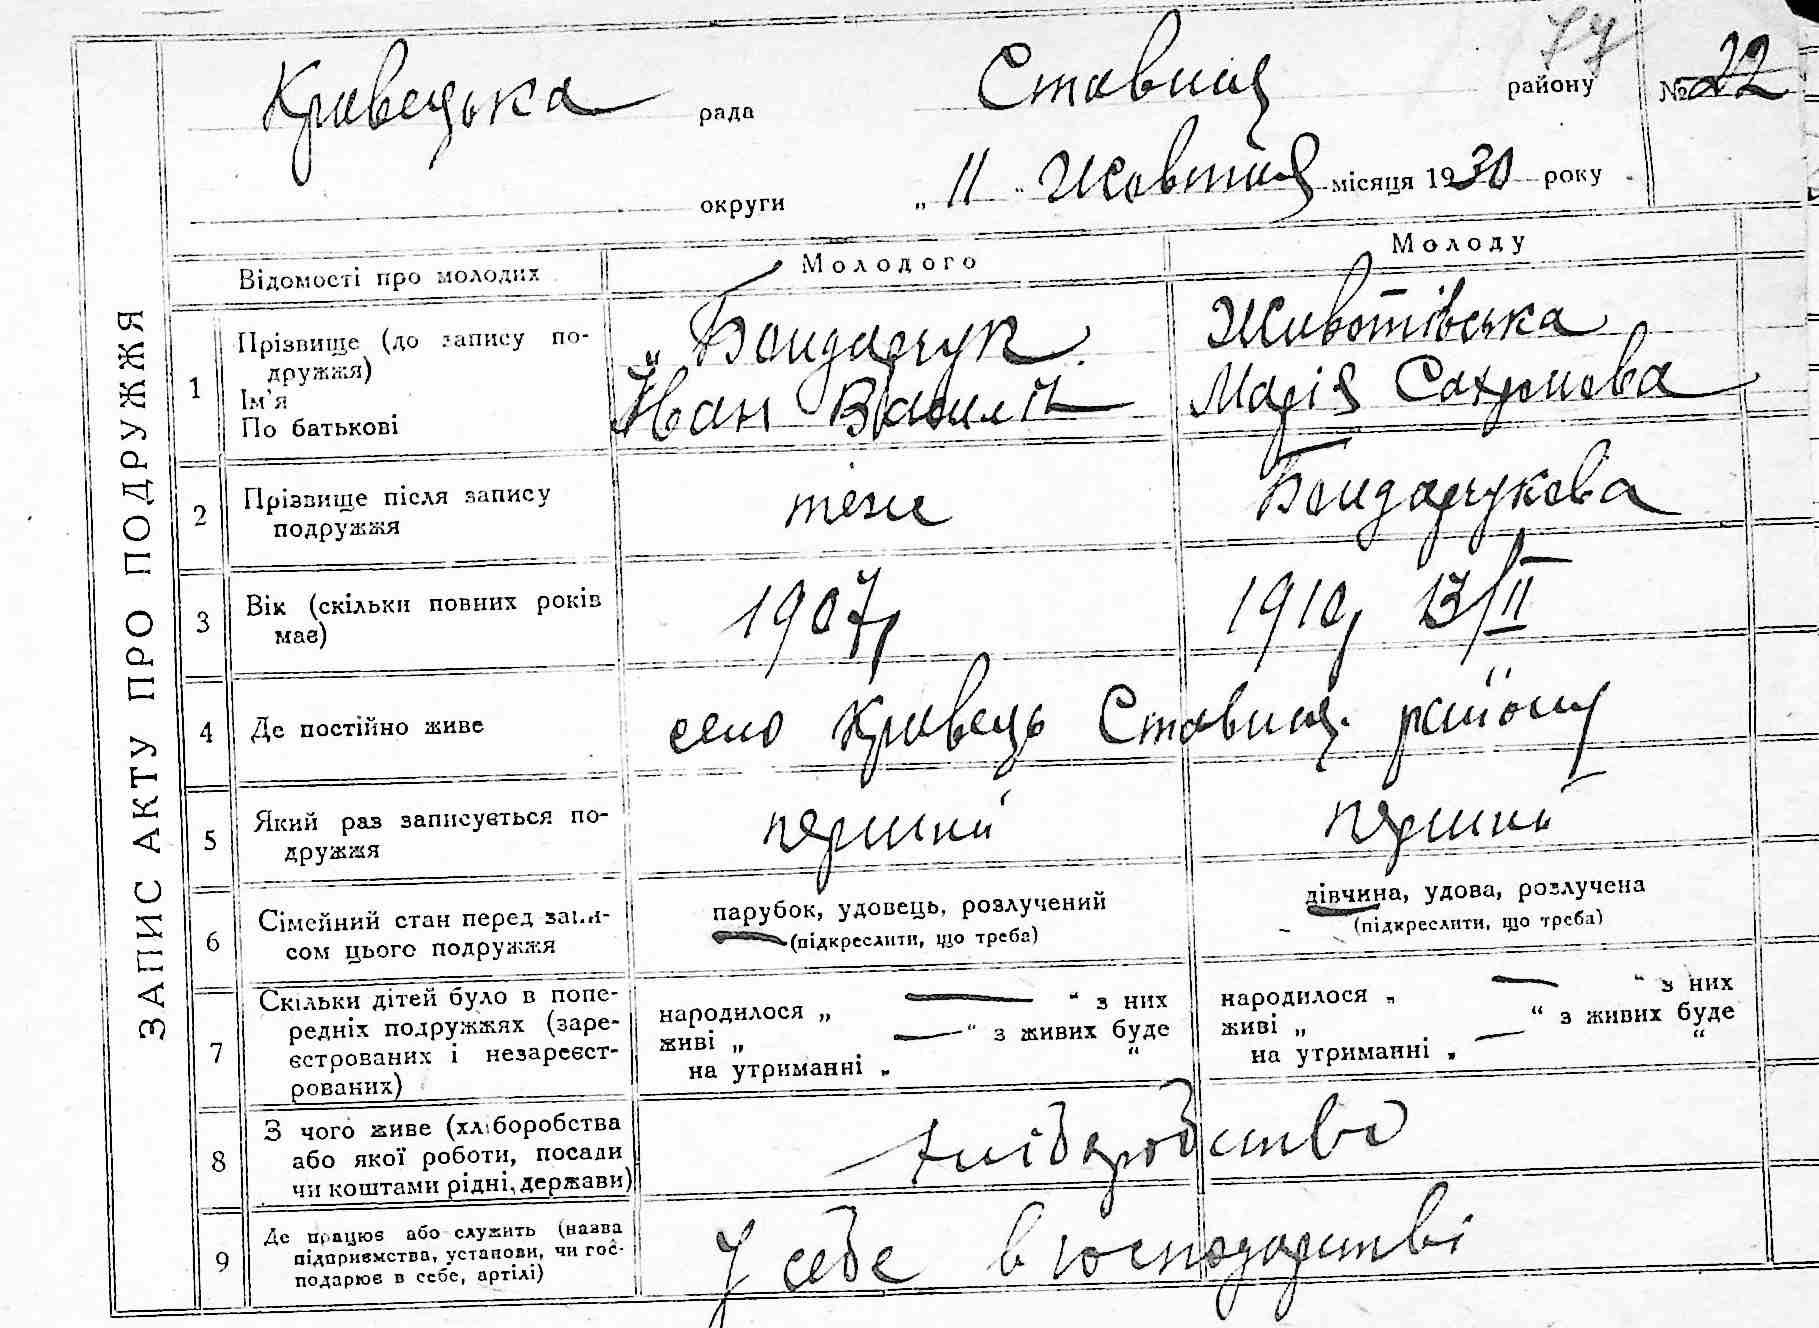 77
Кривецька рада Ставищ. району № 22
округи „ 11 " Жовтня місяця 1930 року
ЗАПИС АКТУ ПРО ПОДРУЖЖЯ
Відомості про молодих Молодого Молоду
1 Прізвище (до запису по-
дружжя)
Ім'я
По батькові
Бондарчук
Іван Василів
Животівська
Марія Сахронова
2 Прізвище після запису
подружжя
теж
Бондарчукова
3 Вік (скільки повних років
має)
1907р
1910р 13/II
4 Де постійно живе село Кривець Ставищ. району
5 Який раз записується по-
дружжя
перший
перший
6 Сімейний стан перед запи-
сом цього подружжя
парубок, удовець, розлучений
(підкреслити, що треба)
дівчина, удова, розлучена
(підкреслити, що треба)
7 Скільки дітей було в попе-
редніх подружжях (заре-
єстрованих і незареєст-
рованих)
народилося „ — " з них
живі „ — " з живих буде
на утриманні „ "
народилося „ — " з них
живі „ — " з живих буде
на утриманні „ "
8 З чого живе (хліборобства
або якої роботи, посади
чи коштами рідні, держави)
хліборобство
9 Де працює або служить (назва
підприємства, установи, чи гос-
подарює в себе, артілі)
У себе в господарстві